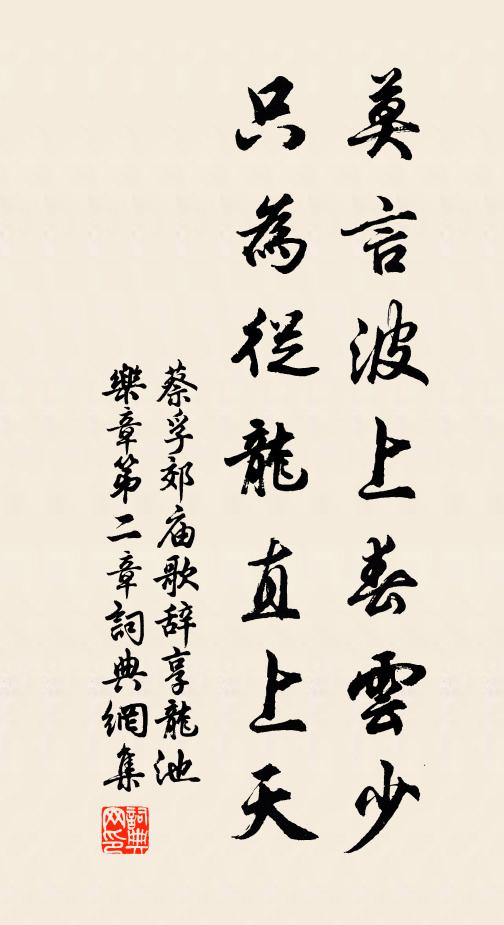 莫言波上春雲少
只為從龍直上天
蔡孚郊庙歌辞享龍池
樂章第二章詞典網集
詞典
网印